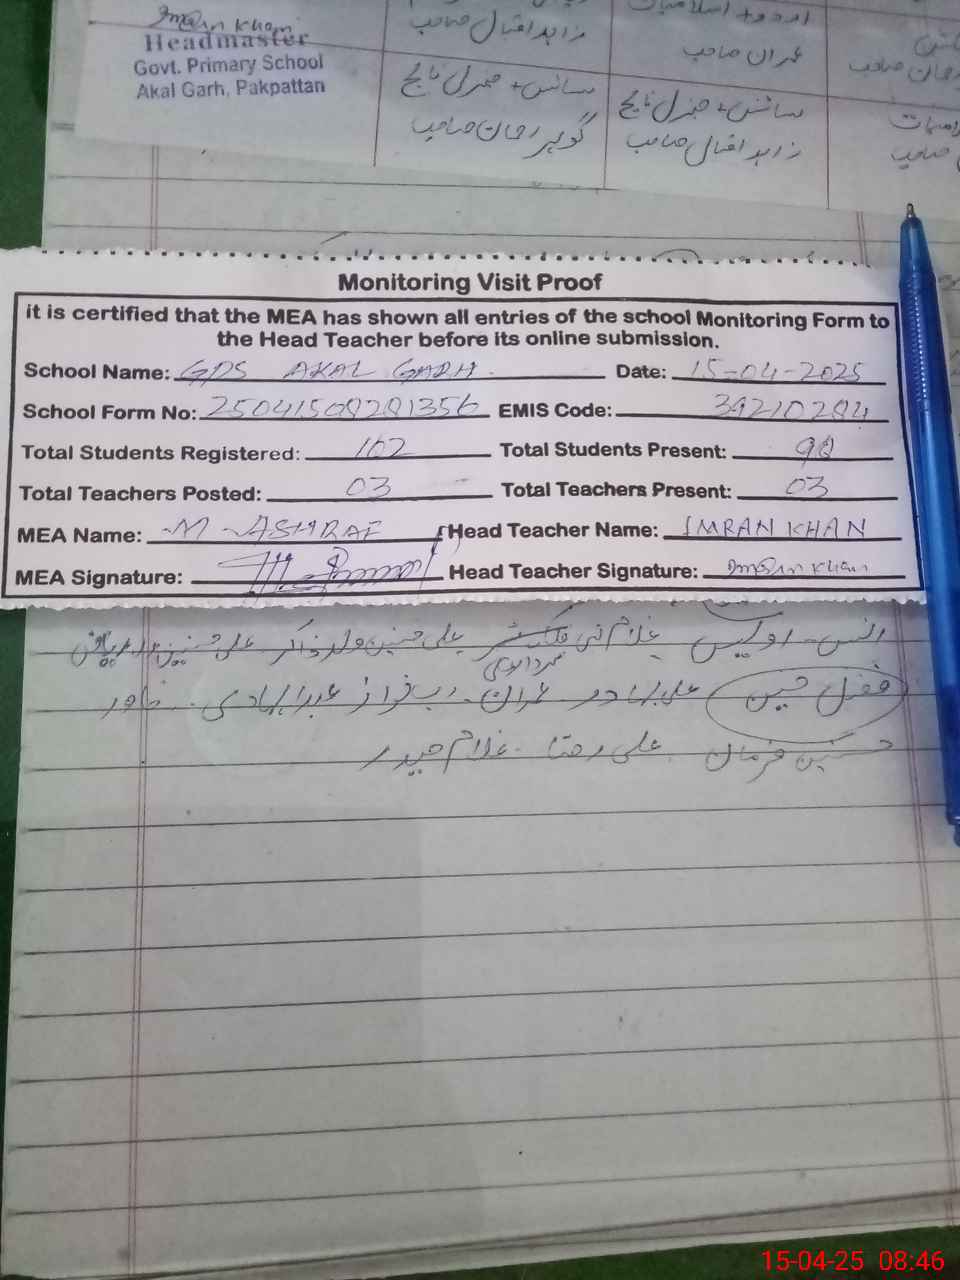 Imran Khan
Headmaster
Govt. Primary School
Akal Garh, Pakpattan
زاہد اقبال صاحب
عمران صاحب
سائنس + جنرل نالج
گوہر رحمان صاحب
سائنس + جنرل نالج
زاہد اقبال صاحب
صاحب
Monitoring Visit Proof
it is certified that the MEA has shown all entries of the school Monitoring Form to
the Head Teacher before its online submission.
School Name: GPS AKAL GARH. Date: 15-04-2025
School Form No: EMIS Code: 39210284
Total Students Registered: 102 Total Students Present:
Total Teachers Posted: 03 Total Teachers Present: 03
MEA Name: M ASHRAF Head Teacher Name: IMRAN KHAN
MEA Signature: Head Teacher Signature: Imran Khan
انس - اویس غلام نبی علی حسنین ولد ذاکر علی حسنین
فضل حسین علی بہادر عبدالہادی
حسنین فرمان علی رضا - غلام حیدر
15-04-25 08:46